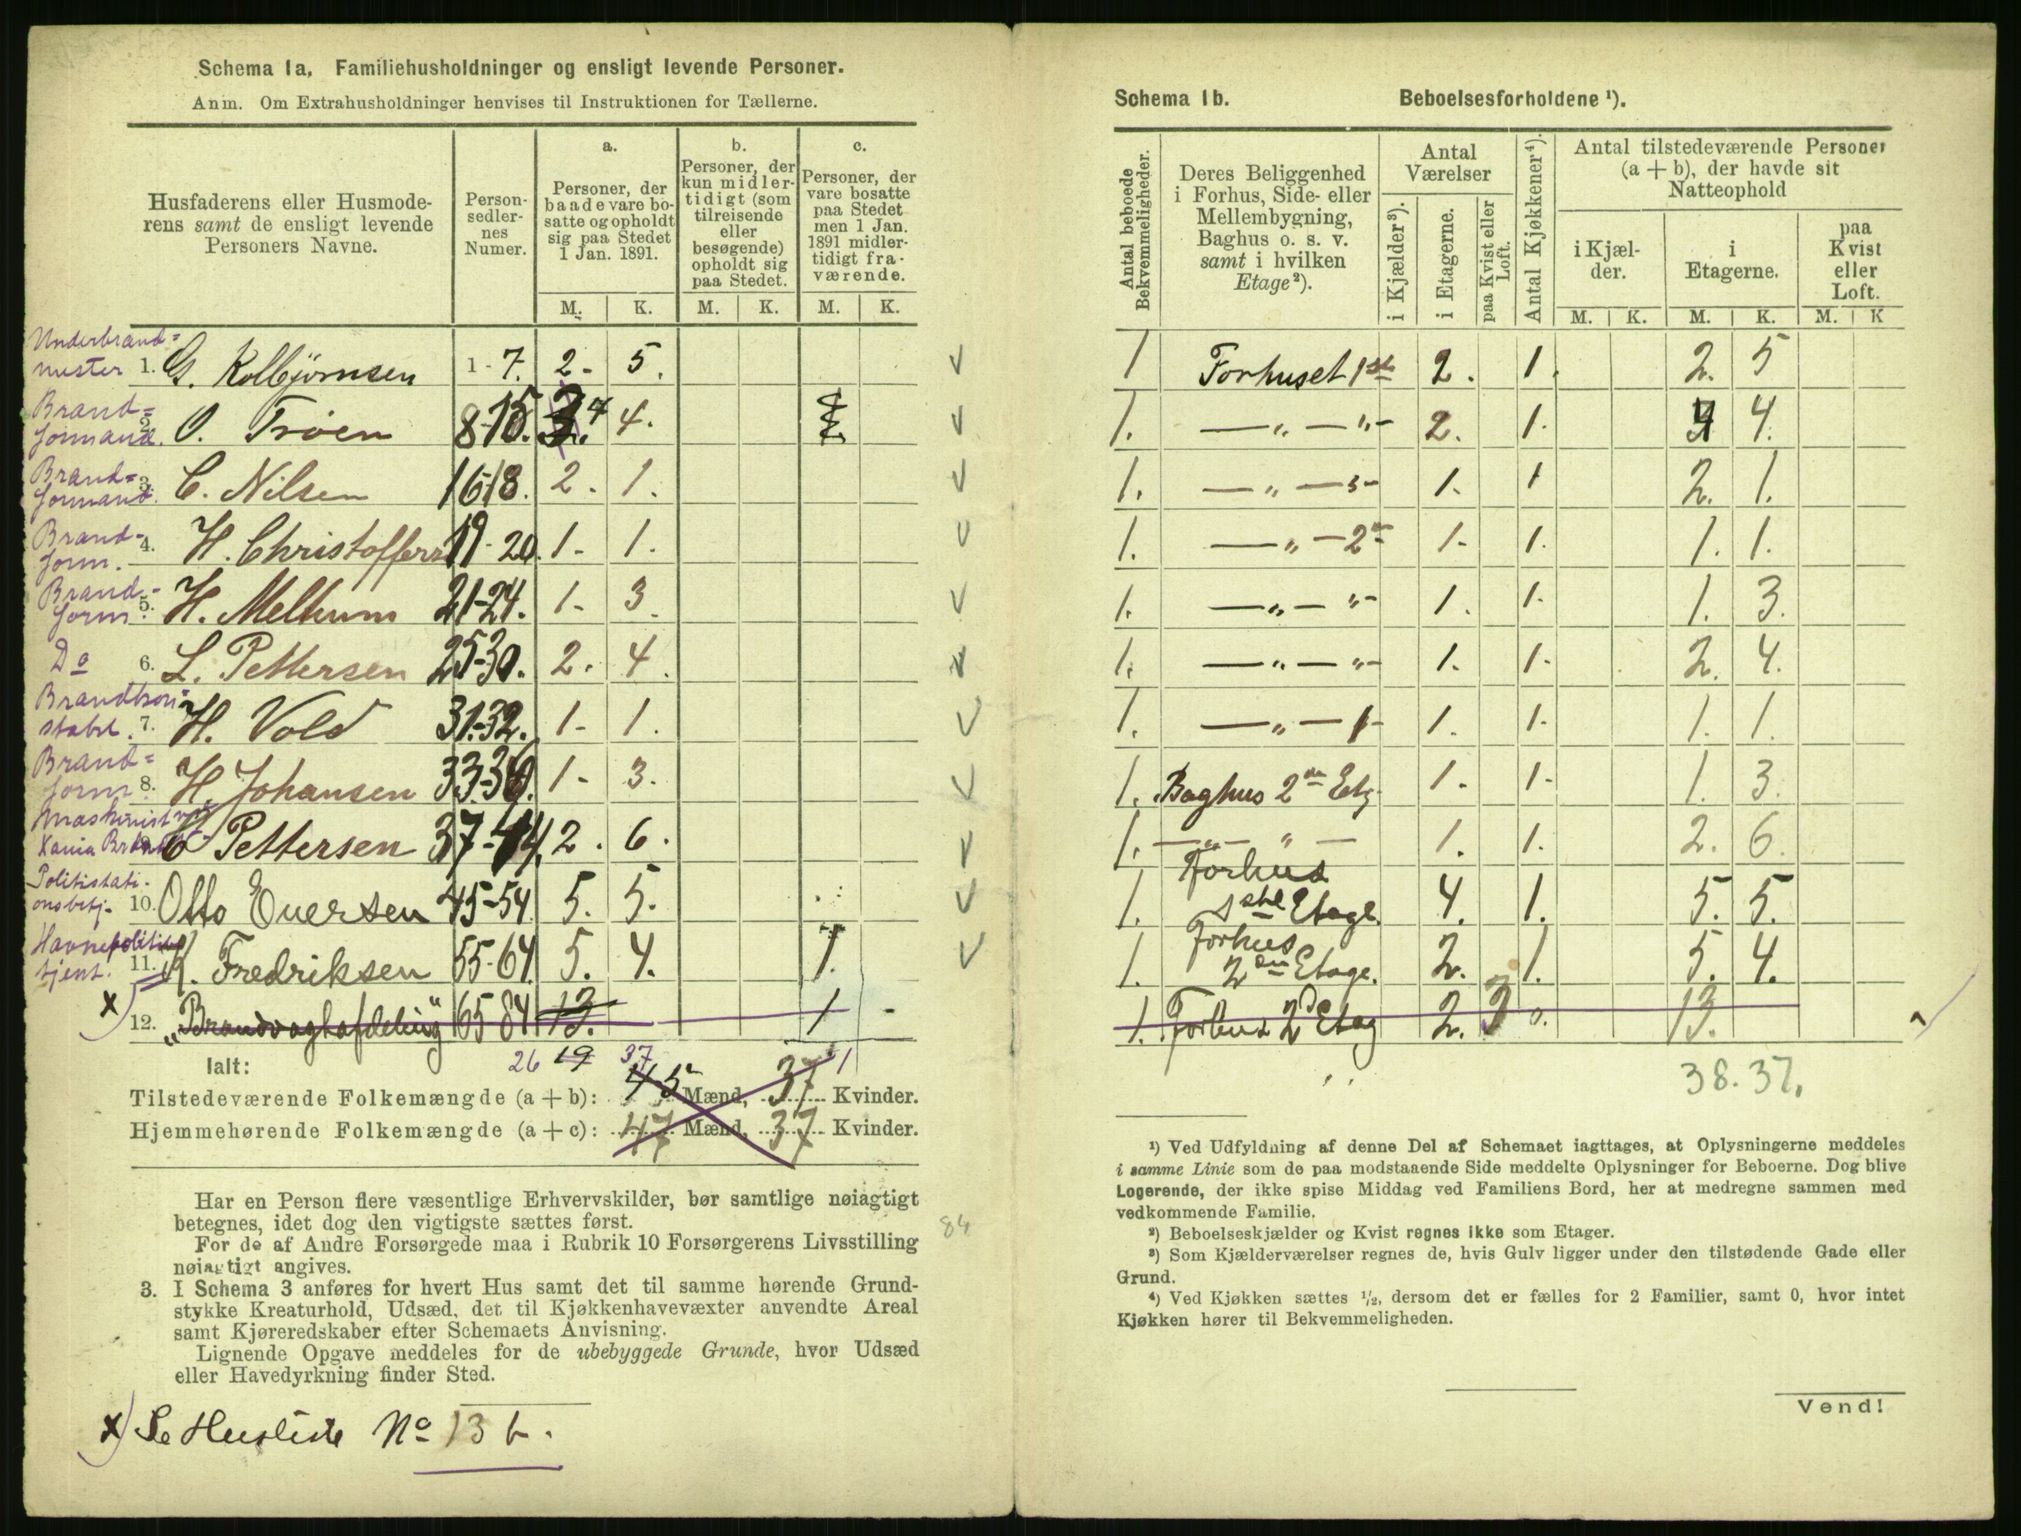 Schema 1a. Familiehusholdninger og ensligt levende Personer.
Anm. Om Extrahusholdninger henvises til Instruktionen for Tællerne.
Husfaderens eller Husmoderens samt de ensligt levende Personers Navne.
Person-sedler-nes Numer.
a. Personer, der baade vare bosatte og opholdt sig paa Stedet 1 Jan. 1891.
b. Personer, der kun midlertidigt (som tilreisende eller besøgende) opholdt sig paa Stedet.
c. Personer, der vare bosatte paa Stedet men 1 Jan. 1891 midlertidigt fraværende.
M. K. M. K. M. K.
Underbrand=mester 1. G. Kolbjørnsen 1-7. 2- 5.
Brand=formand 2. O. Trøen 8-15. 4 4.
Brand=formand. 3. C. Nilsen 16-18. 2. 1.
Brand-form. 4. H. Christoffers 19-20. 1- 1.
Brand-form 5. H. Melhum 21-24. 1- 3.
Do 6. L. Pettersen 25-30. 2. 4.
Brandkon=stabel. 7. H. Vold 31-32. 1- 1.
Brand=form. 8. H. Johansen 33-36. 1- 3.
Maskinist 9. C. Pettersen 37-44. 2. 6.
Politistati-onsbetj- 10. Otto Evensen 45-54. 5. 5.
Havnepoliti tjent. 11. K. Fredriksen 55-64. 5. 4. 1.
x) 12. "Brandvagtafdeling" 65 84 13. 1 -
Ialt: 26 19 37 1
Tilstedeværende Folkemængde (a + b): 45 Mænd, 37 Kvinder.
Hjemmehørende Folkemængde (a + c): 47 Mænd, 37 Kvinder.
Har en Person flere væsentlige Erhvervskilder, bør samtlige nøiagtigt
betegnes, idet dog den vigtigste sættes først.
84
For de af Andre Forsørgede maa i Rubrik 10 Forsørgerens Livsstilling
nøiagtigt angives.
3. I Schema 3 anføres for hvert Hus samt det til samme hørende Grund-
stykke Kreaturhold, Udsæd, det til Kjøkkenhavevæxter anvendte Areal
samt Kjøreredskaber efter Schemaets Anvisning.
Lignende Opgave meddeles for de ubebyggede Grunde, hvor Udsæd
eller Havedyrkning finder Sted.
x) Se Husliste No 13 b.
Schema 1b. Beboelsesforholdene ¹).
Antal beboede Bekvemmeligheder.
Deres Beliggenhed i Forhus, Side- eller Mellembygning, Baghus o. s. v. samt i hvilken Etage ²).
Antal Værelser
i Kjælder ³).
i Etagerne.
paa Kvist eller Loft.
Antal Kjøkkener ⁴).
Antal tilstedeværende Personer (a + b), der havde sit Natteophold
i Kjælder.
i Etagerne.
paa Kvist eller Loft.
M. K. M. K. M. K
1 Forhuset 1ste 2. 1. 2. 5
1. — „ — „ - 2. 1. 4 4.
1. — „ — „ - 1. 1 2. 1.
1. — „ — 2den 1- 1. 1. 1.
1. — „ — „ - 1. 1. 1. 3.
1. — „ — „ - 1. 1- 2. 4.
1. — „ — „ - 1. 1- 1. 1.
1. Baghus 2den Etg. 1. 1- 1. 3.
1. — „ — „ — 1. 1. 2. 6.
1. Forhus 1ste Etage. 4. 1. 5. 5.
1. Forhus 2den Etage. 2. 1. 5. 4.
1. Forhus 2d Etag 2. 3 0. 13.
38. 37.
¹) Ved Udfyldning af denne Del af Schemaet iagttages, at Oplysningerne meddeles
i samme Linie som de paa modstaaende Side meddelte Oplysninger for Beboerne. Dog blive
Logerende, der ikke spise Middag ved Familiens Bord, her at medregne sammen med
vedkommende Familie.
²) Beboelseskjælder og Kvist regnes ikke som Etager.
³) Som Kjælderværelser regnes de, hvis Gulv ligger under den tilstødende Gade eller
Grund.
⁴) Ved Kjøkken sættes ½, dersom det er fælles for 2 Familier, samt 0, hvor intet
Kjøkken hører til Bekvemmeligheden.
Vend!